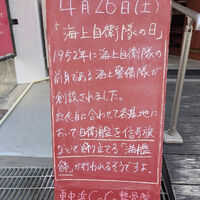 4月26日(土)
「海上自衛隊の日」
1952年に海上自衛隊の
前身である海上警備隊が
創設されました。
記念日に合わせて各基地に
おいて自衛艦を信号旗
などで飾り立てる「満艦
飾」が行われるそうですよ。